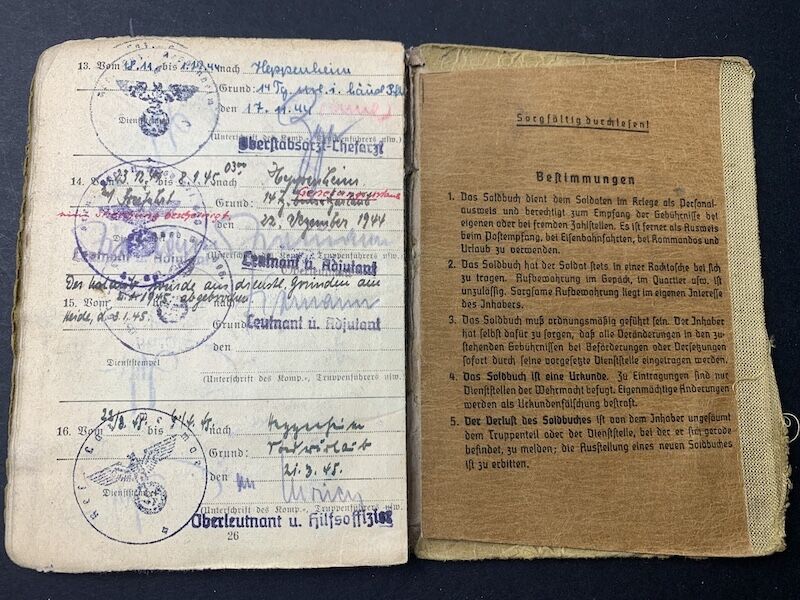 13. Vom 18.11. bis 1.12.44 nach Heppenheim
Grund: 14 Tg.
den 17.11.44
Dienststempel
(Unterschrift des Komp.-, Truppenführers usw.)
Oberstabsarzt u. Chefarzt
14. Vom 23.12.44 bis 8.1.45 0300 Heppenheim
Grund: 14
22. Dezember 1944
Leutnant u. Adjutant
Leutnant u. Adjutant
Der Urlaub wurde aus dienstl. Gründen am
1945 abgebrochen
15. Vom
Heide, d. 3.1.45.
Grund
Leutnant u. Adjutant
den
Dienststempel
(Unterschrift des Komp.-, Truppenführers usw.)
16. Vom bis nach Heppenheim
Grund:
den 21.3.45.
Dienststempel
(Unterschrift des Komp.-, Truppenführers usw.)
Oberleutnant u. Hilfsoffizier
26
Sorgfältig durchlesen!
Bestimmungen
1. Das Soldbuch dient dem Soldaten im Kriege als Personal-
ausweis und berechtigt zum Empfang der Gebührnisse bei
eigenen oder bei fremden Zahlstellen. Es ist ferner als Ausweis
beim Postempfang, bei Eisenbahnfahrten, bei Kommandos und
Urlaub zu verwenden.
2. Das Soldbuch hat der Soldat stets in einer Rocktasche bei sich
zu tragen. Aufbewahrung im Gepäck, im Quartier usw. ist
unzulässig. Sorgsame Aufbewahrung liegt im eigenen Interesse
des Inhabers.
3. Das Soldbuch muß ordnungsmäßig geführt sein. Der Inhaber
hat selbst dafür zu sorgen, daß alle Veränderungen in den zu-
stehenden Gebührnissen bei Beförderungen oder Versetzungen
sofort durch seine vorgesetzte Dienststelle eingetragen werden.
4. Das Soldbuch ist eine Urkunde. Zu Eintragungen sind nur
Dienststellen der Wehrmacht befugt. Eigenmächtige Änderungen
werden als Urkundenfälschung bestraft.
5. Der Verlust des Soldbuches ist von dem Inhaber ungesäumt
dem Truppenteil oder der Dienststelle, bei der er sich gerade
befindet, zu melden; die Ausstellung eines neuen Soldbuches
ist zu erbitten.